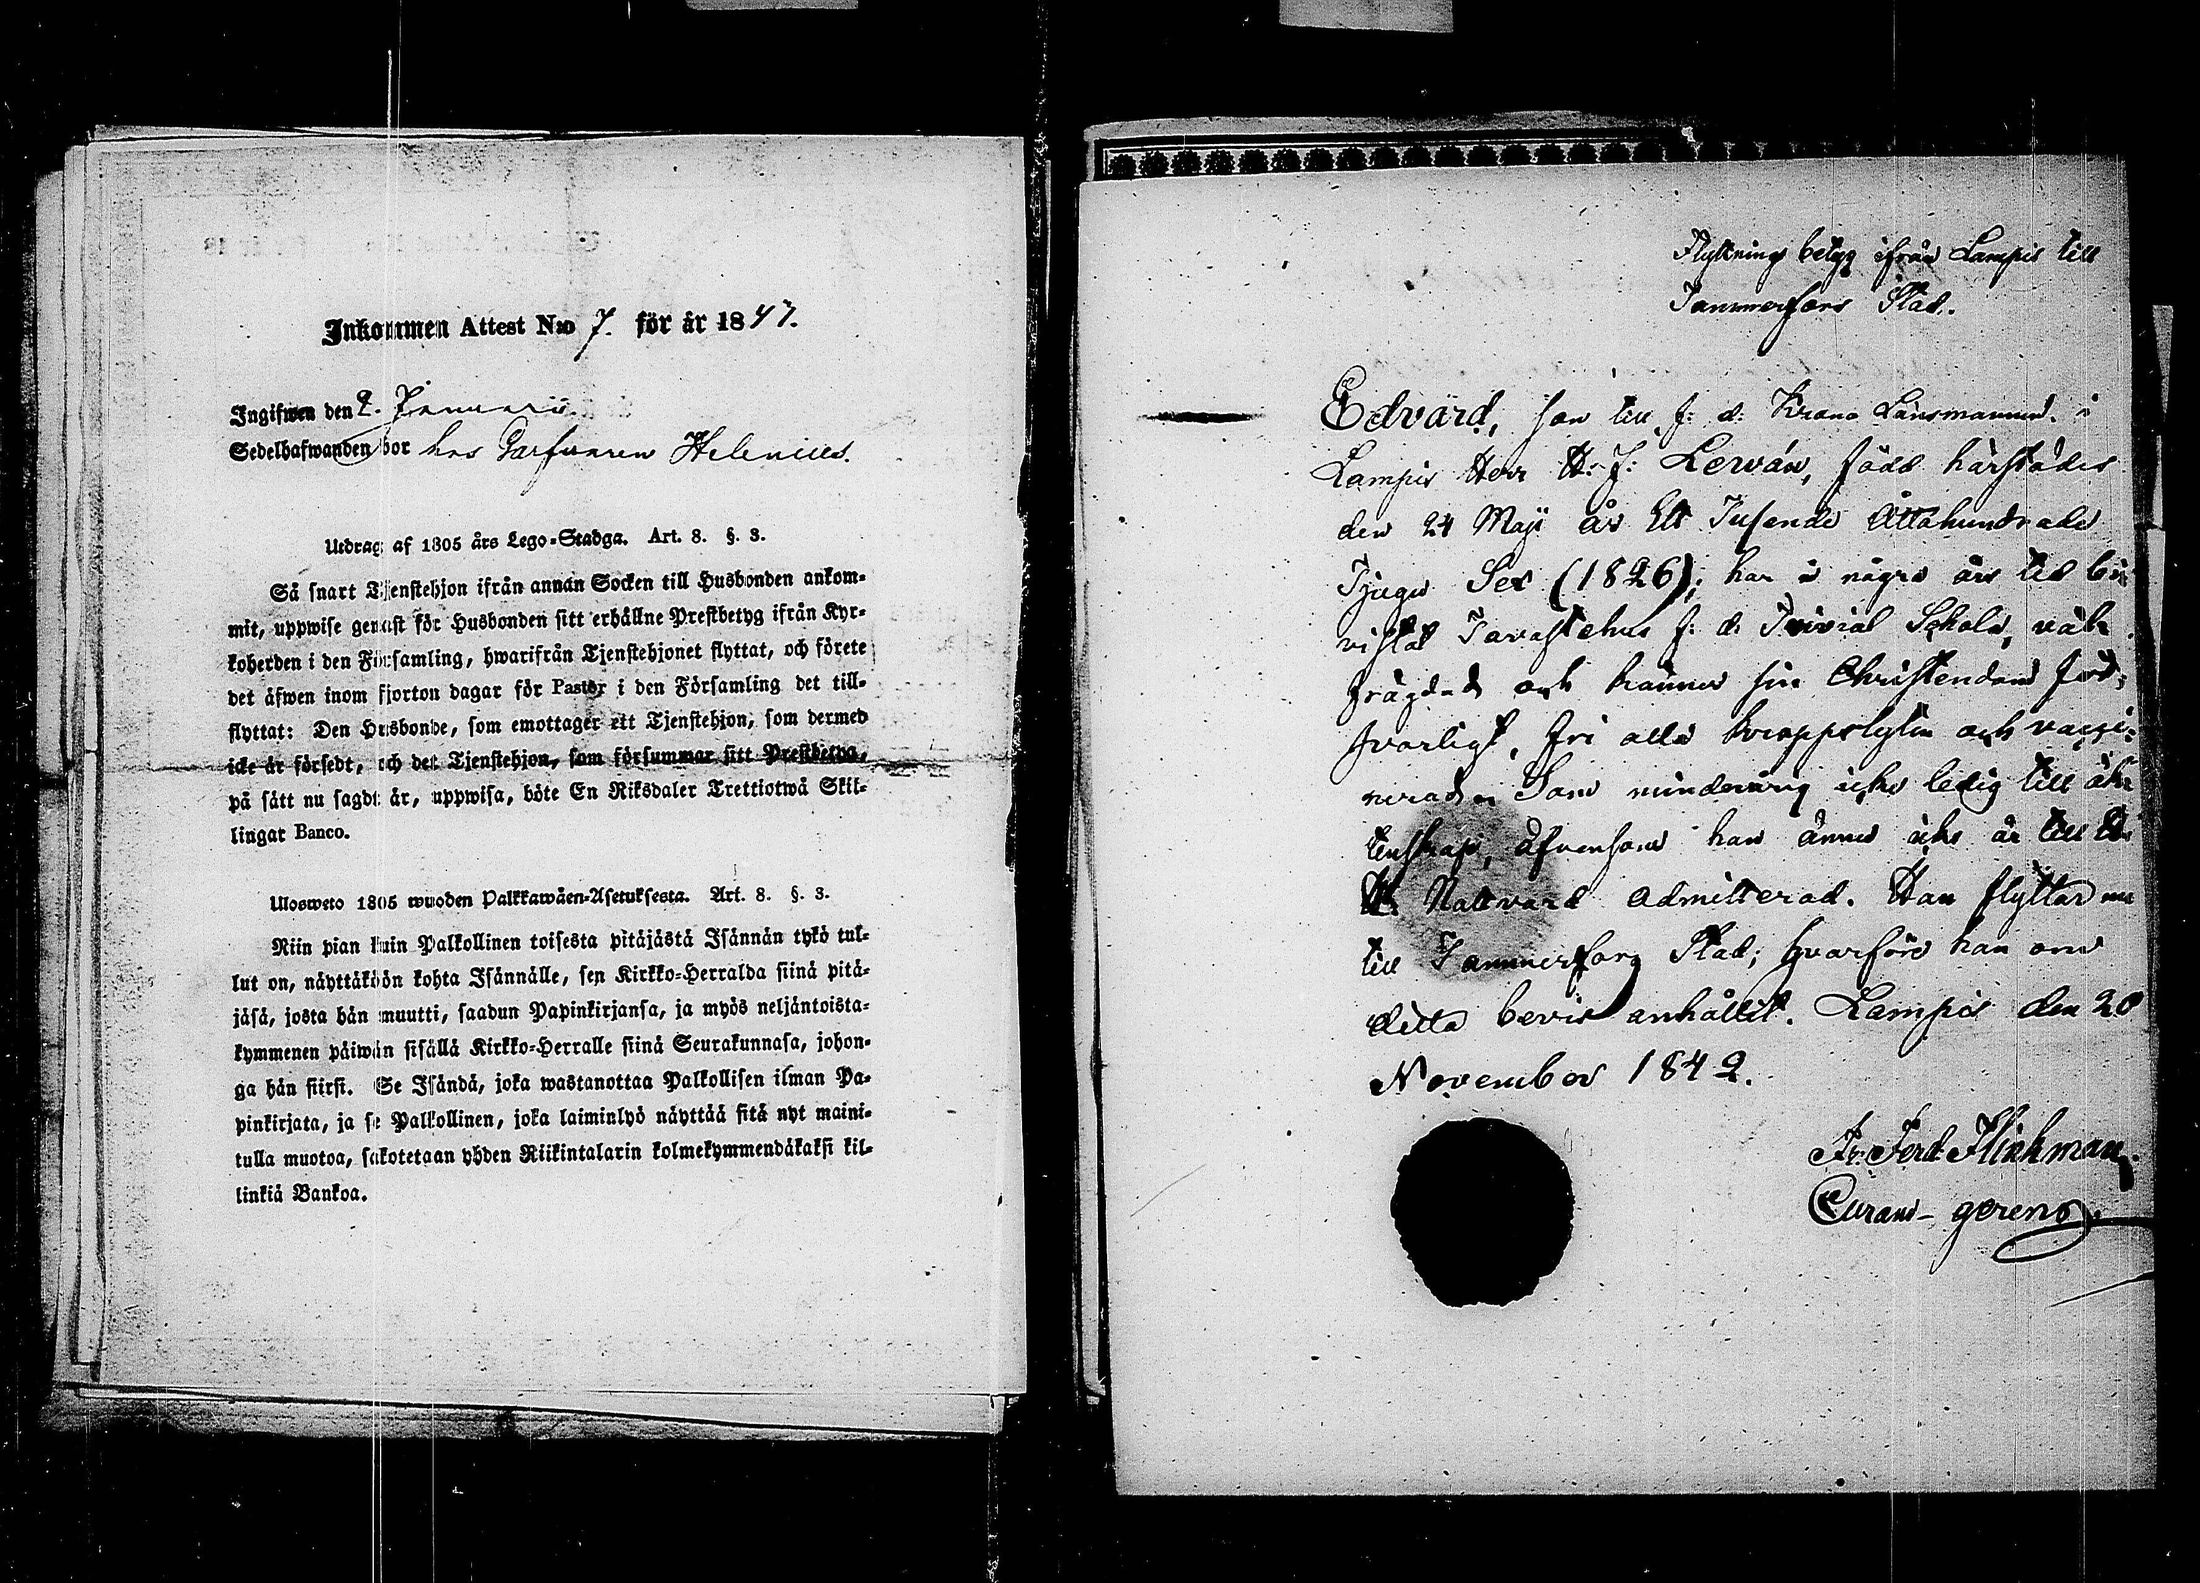 Inkommen Attest N:o 7. för år 1847.
Ingifwen den 2. Januarii
Sedelhafwanden bor hos Garfvaren Helenius.
Utdrag af 1805 års Lego-Stadga. Art. 8. §. 3.
Så snart Tjenstehjon ifrån annan Socken till Husbonden ankom-
mit, uppwise genast för Husbonden sitt erhållne Prestbetyg ifrån Kyr-
koherden i den Församling, hwarifrån Tjenstehjonet flyttat, och förete
det äfwen inom fjorton dagar för Pastor i den Församling det till-
flyttat: Den Husbonde, som emottager ett Tjenstehjon, som dermed
icke är försedt, och det Tjenstehjon, som försummar sitt Prestbetyg,
på sätt nu sagdt är, uppwisa, böte En Riksdaler Trettiotwå Skil-
lingar Banco.
Ulosweto 1805 wuoden Palkkawäen-Asetuksesta. Art. 8. §. 3.
Niin pian kuin Palkollinen toisesta pitäjästä Isännän tykö tul-
lut on, näyttäköön kohta Isännälle, sen Kirkko-Herralda siinä pitä-
jäsä, josta hän muutti, saadun Papinkirjansa, ja myös neljäntoista-
kymmenen päiwän sisällä Kirkko-Herralle siinä Seurakunnasa, johon-
ga hän siirsi. Se Isändä, joka wastanottaa Palkollisen ilman Pa-
pinkirjata, ja se Palkollinen, joka laiminlyö näyttää sitä nyt maini-
tulla muotoa, sakotetaan yhden Riikintalarin kolmekymmendäkaksi kil-
linkiä Bankoa.
Flyttnings betyg ifrån Lampis till
Tammerfors Stad.
Edvard, son till f: d: Krono Länsmannen i
Lampis Herr H: J: Lerván, född härstädes
den 24 Maji år Ett Tusende Åttahundrade
Tjugu Sex (1826); har i några års tid be-
vistat Tavastehus f: d: Trivial Schola, väl
frägdad och känner sin Christendom för-
svarligt, fri alla kroppslyten och vacci-
nerad. Som minderårig icke ledig till äk-
tenskap, äfvensom han ännu icke är till
H. Nattvard admitterad. Han flyttar nu
till Tammerfors Stad; hvarföre han om
detta bevis anhållit. Lampis den 20
November 1842.
Fr: Ferd: Flinkman
Curam gerens.